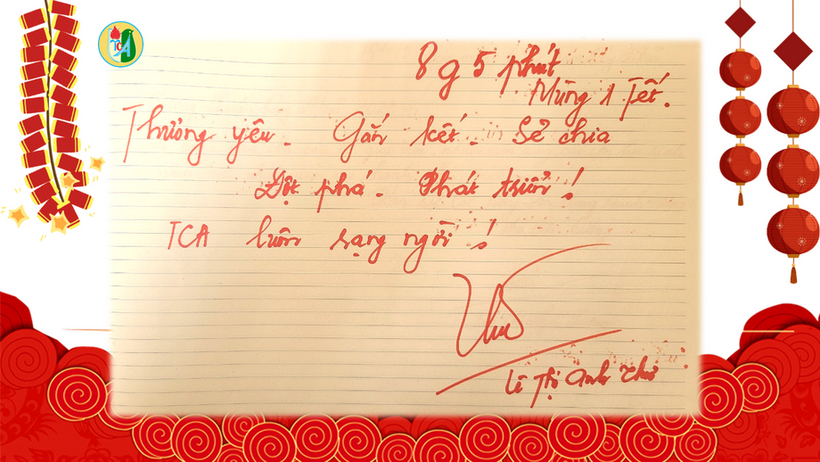 TCA
8 g 5 phút
Mùng 1 Tết.
Thương yêu. Gắn kết. Sẻ chia
Đột phá. Phát triển!
TCA luôn rạng ngời!
Thư
Lê Thị Anh Thư